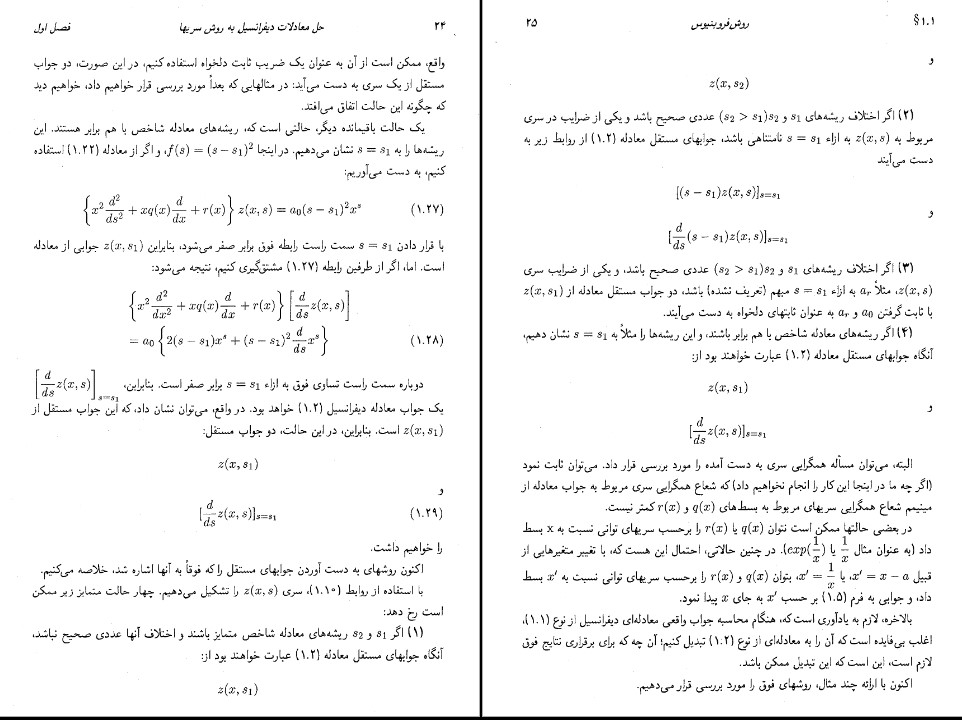 ۲۴ حل معادلات دیفرانسیل به روش سریها فصل اول
واقع، ممکن است از آن به عنوان یک ضریب ثابت دلخواه استفاده کنیم، در این صورت، دو جواب
مستقل از یک سری به دست می‌آید: در مثالهایی که بعداً مورد بررسی قرار خواهیم داد، خواهیم دید
که چگونه این حالت اتفاق می‌افتد.
یک حالت باقیمانده دیگر، حالتی است که، ریشه‌های معادله شاخص با هم برابر هستند. این
ریشه‌ها را به s = s₁ نشان می‌دهیم. در اینجا f(s) = (s − s₁)²، و اگر از معادله (۱.۲۲) استفاده
کنیم، به دست می‌آوریم:
{x² d²/ds² + xq(x) d/dx + r(x)} z(x, s) = a₀(s − s₁)²xˢ (۱.۲۷)
با قرار دادن s = s₁ سمت راست رابطه فوق برابر صفر می‌شود، بنابراین z(x, s₁) جوابی از معادله
است. اما، اگر از طرفین رابطه (۱.۲۷) مشتق‌گیری کنیم، نتیجه می‌شود:
{x² d²/dx² + xq(x) d/dx + r(x)} [d/ds z(x, s)]
= a₀ {2(s − s₁)xˢ + (s − s₁)² d/ds xˢ} (۱.۲۸)
دوباره سمت راست تساوی فوق به ازاء s = s₁ برابر صفر است. بنابراین، [d/ds z(x, s)]s=s₁
یک جواب معادله دیفرانسیل (۱.۲) خواهد بود. در واقع، می‌توان نشان داد، که این جواب مستقل از
z(x, s₁) است. بنابراین، در این حالت، دو جواب مستقل:
z(x, s₁)
و
[d/ds z(x, s)]s=s₁ (۱.۲۹)
را خواهیم داشت.
اکنون روشهای به دست آوردن جوابهای مستقل را که فوقاً به آنها اشاره شد، خلاصه می‌کنیم.
با استفاده از روابط (۱.۱۰)، سری z(x, s) را تشکیل می‌دهیم. چهار حالت متمایز زیر ممکن
است رخ دهد:
(۱) اگر s₁ و s₂ ریشه‌های معادله شاخص متمایز باشند و اختلاف آنها عددی صحیح نباشد،
آنگاه جوابهای مستقل معادله (۱.۲) عبارت خواهند بود از:
z(x, s₁)
§۱.۱ روش فروبنیوس ۲۵
و
z(x, s₂)
(۲) اگر اختلاف ریشه‌های s₁ و s₂(s₂ > s₁) عددی صحیح باشد و یکی از ضرایب در سری
مربوط به z(x, s) به ازاء s = s₁ نامتناهی باشد، جوابهای مستقل معادله (۱.۲) از روابط زیر به
دست می‌آیند
[(s − s₁)z(x, s)]s=s₁
و
[d/ds (s − s₁)z(x, s)]s=s₁
(۳) اگر اختلاف ریشه‌های s₁ و s₂(s₂ > s₁) عددی صحیح باشد، و یکی از ضرایب سری
z(x, s)، مثلاً aᵣ به ازاء s = s₁ مبهم (تعریف نشده) باشد، دو جواب مستقل معادله از z(x, s₁)
با ثابت گرفتن a₀ و aᵣ به عنوان ثابتهای دلخواه به دست می‌آیند.
(۴) اگر ریشه‌های معادله شاخص با هم برابر باشند، و این ریشه‌ها را مثلاً به s = s₁ نشان دهیم،
آنگاه جوابهای مستقل معادله (۱.۲) عبارت خواهند بود از:
z(x, s₁)
و
[d/ds z(x, s)]s=s₁
البته، می‌توان مسأله همگرایی سری به دست آمده را مورد بررسی قرار داد. می‌توان ثابت نمود
(اگر چه ما در اینجا این کار را انجام نخواهیم داد) که شعاع همگرایی سری مربوط به جواب معادله از
مینیمم شعاع همگرایی سریهای مربوط به بسط‌های q(x) و r(x) کمتر نیست.
در بعضی حالتها ممکن است نتوان q(x) یا r(x) را برحسب سریهای توانی نسبت به x بسط
داد (به عنوان مثال 1/x یا exp(1/x)). در چنین حالاتی، احتمال این هست که، با تغییر متغیرهایی از
قبیل x′ = x − a، یا x′ = 1/x، بتوان q(x) و r(x) را برحسب سریهای توانی نسبت به x′ بسط
داد، و جوابی به فرم (۱.۵) بر حسب x′ به جای x پیدا نمود.
بالاخره، لازم به یادآوری است که، هنگام محاسبه جواب واقعی معادله‌ای دیفرانسیل از نوع (۱.۱)،
اغلب بی‌فایده است که آن را به معادله‌ای از نوع (۱.۲) تبدیل کنیم؛ آن چه که برای برقراری نتایج فوق
لازم است، این است که این تبدیل ممکن باشد.
اکنون با ارائه چند مثال، روشهای فوق را مورد بررسی قرار می‌دهیم.